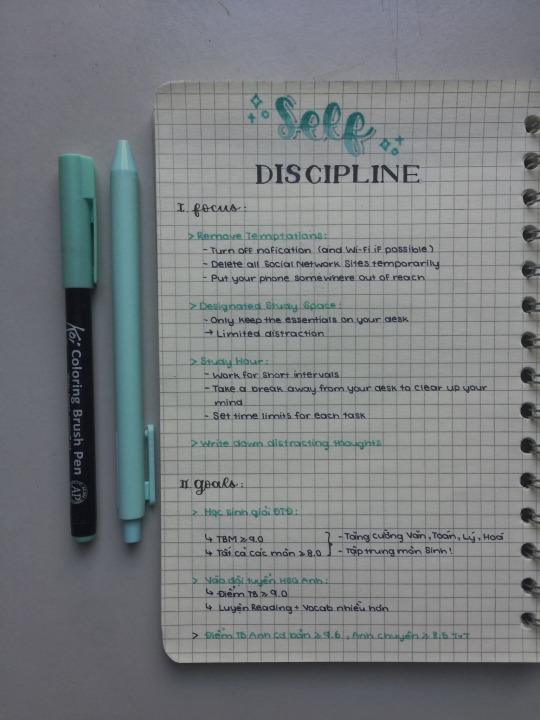 Self
DISCIPLINE
I. focus:
> Remove Temptations:
- Turn off nofication (and Wi-Fi if possible)
- Delete all Social Network Sites temporarily
- Put your phone somewhere out of reach
> Designated Study Space:
- Only keep the essentials on your desk
→ Limited distraction
> Study Hour:
- Work for short intervals
- Take a break away from your desk to clear up your
mind
- Set time limits for each task
> Write down distracting thoughts
II. goals:
> Học sinh giỏi ĐTĐ:
↳ TBM ≥ 9.0 } - Tăng cường Văn, Toán, Lý, Hoá
↳ Tất cả các môn ≥ 8.0 - Tập trung môn Sinh!
> Vào đội tuyển HSG Anh:
↳ Điểm TB ≥ 9.0
↳ Luyện Reading + Vocab nhiều hơn
> Điểm TB Anh cơ bản ≥ 9.6, Anh chuyên ≥ 8.5 TvT
Koi Coloring Brush Pen
AP